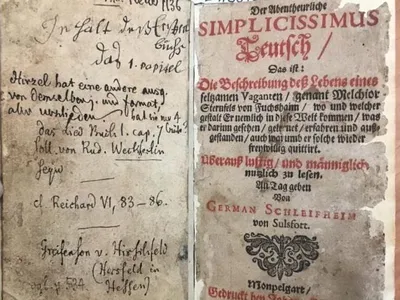 1136
Inhalt deß Ersten
Buchs
das 1. capitel
Hirzel hat eine andere ausg.
von demselben j. und format,
alsoworinnen
das lied Buch 1. cap. 7
soll von Rud. Weckherlin
seyn
cf Reichard VI, 83–86.
Grafschaft v. Hirschfeld
(Hersfeld in
Hessen)
vgl. p 524.
Der Abentheurliche
SIMPLICISSIMUS
Teutsch/
Das ist:
Die Beschreibung deß Lebens eines
seltzamen Vaganten/ genant Melchior
Sternfels von Fuchshaim/ wo und welcher
gestalt Er nemlich in diese Welt kommen/ was
er darinn gesehen/ gelernet/ erfahren und auß-
gestanden/ auch warumb er solche wieder
freywillig quittirt.
Überauß lustig/ und männiglich
nutzlich zu lesen.
An Tag geben
Von
GERMAN SCHLEIFHEIM
von Sulsfort.
Monpelgart/
Gedruckt bey